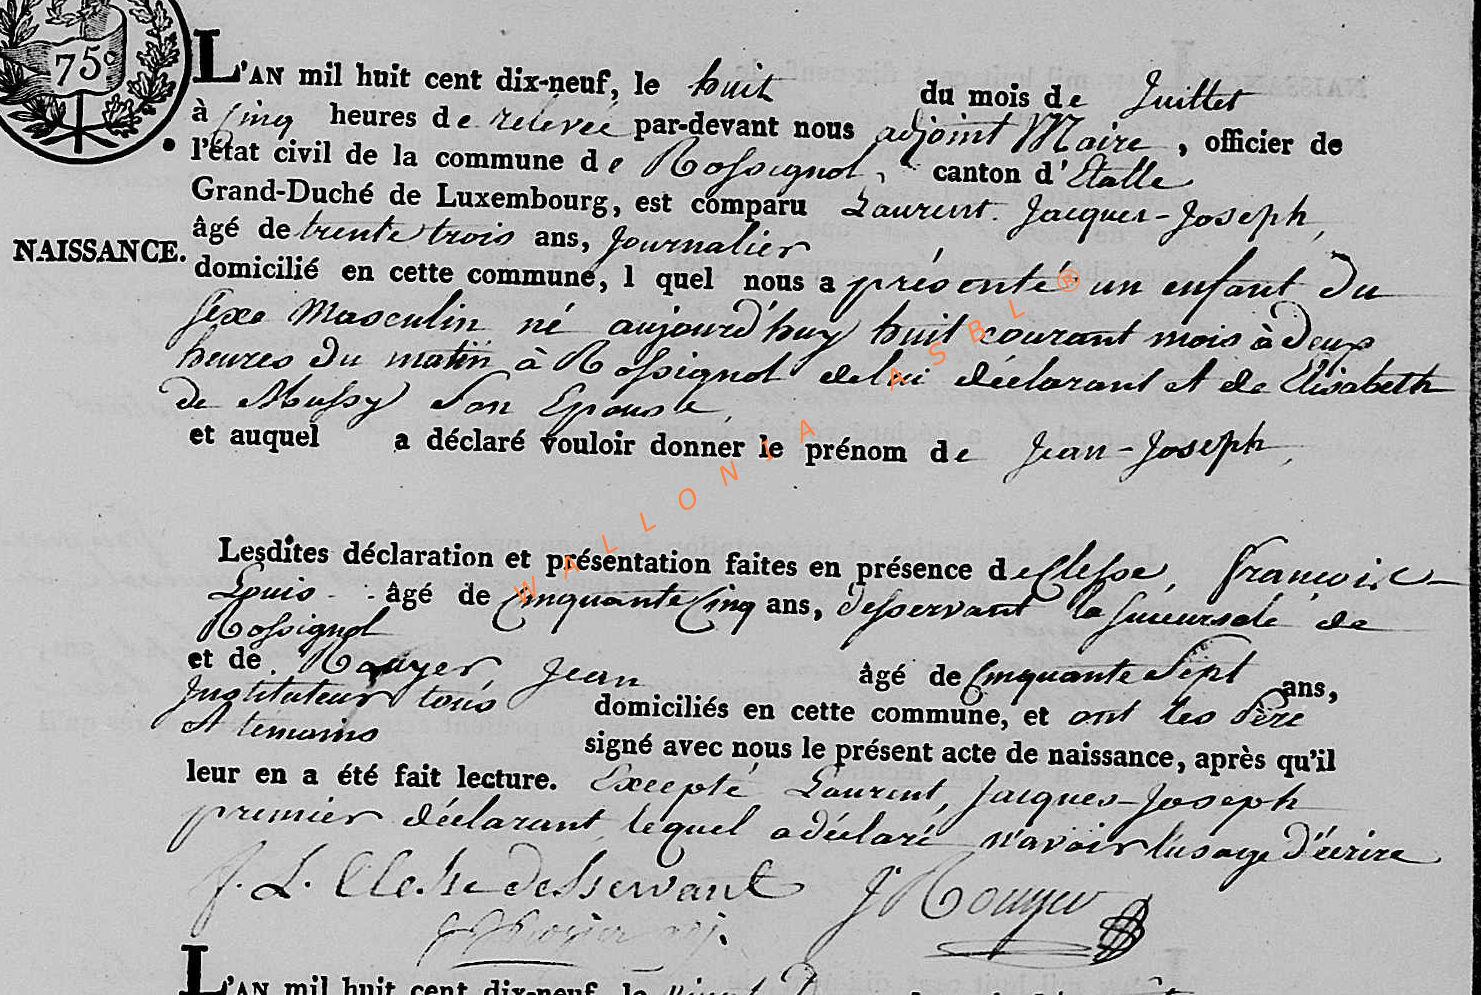 75c
L'AN mil huit cent dix-neuf, le huit du mois de Juillet
à Cinq heures de relevée par-devant nous adjoint Maire, officier de
l'état civil de la commune de Rossignol, canton d'Etalle
Grand-Duché de Luxembourg, est comparu Laurent Jacques-Joseph,
âgé de trente trois ans, Journalier
NAISSANCE.
domicilié en cette commune, l quel nous a présenté un enfant du
Sexe Masculin né aujourd'huy huit courant mois à deux
heures du matin à Rossignol de lui déclarant et de Elisabeth
de Mussy Son Epouse,
et auquel a déclaré vouloir donner le prénom de Jean-Joseph,
Lesdites déclaration et présentation faites en présence de Clesse, francois-
Louis âgé de Cinquante Cinq ans, desservant la succursale de
Rossignol
et de Rouyer, Jean âgé de Cinquante Sept ans,
Instituteur tous domiciliés en cette commune, et ont les Père
et temoins signé avec nous le présent acte de naissance, après qu'il
leur en a été fait lecture. Excepté Laurent, Jacques-Joseph
premier déclarant lequel a déclaré n'avoir l'usage d'écrire
f. L. Clesse desservant J Rouyer
adj.
WALLONIA ASBL®
L'AN mil huit cent dix-neuf, le vingt